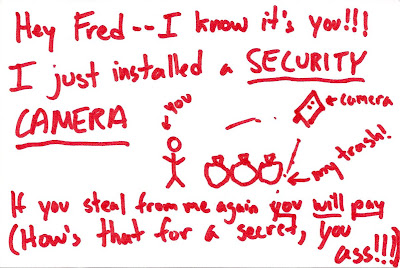 Hey Fred--I know it's you!!!
I just installed a SECURITY
CAMERA
you
camera
my trash!
If you steal from me again you will pay
(How's that for a secret, you
ass!!!)